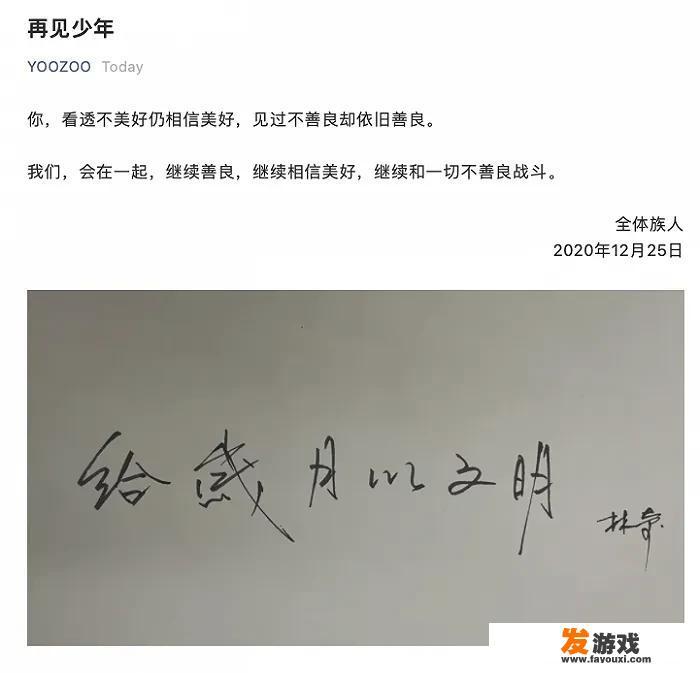 再见少年
YOOZOO Today
你，看透不美好仍相信美好，见过不善良却依旧善良。
我们，会在一起，继续善良，继续相信美好，继续和一切不善良战斗。
全体族人
2020年12月25日
给岁月以文明
林奇
发游戏
www.fayouxi.com